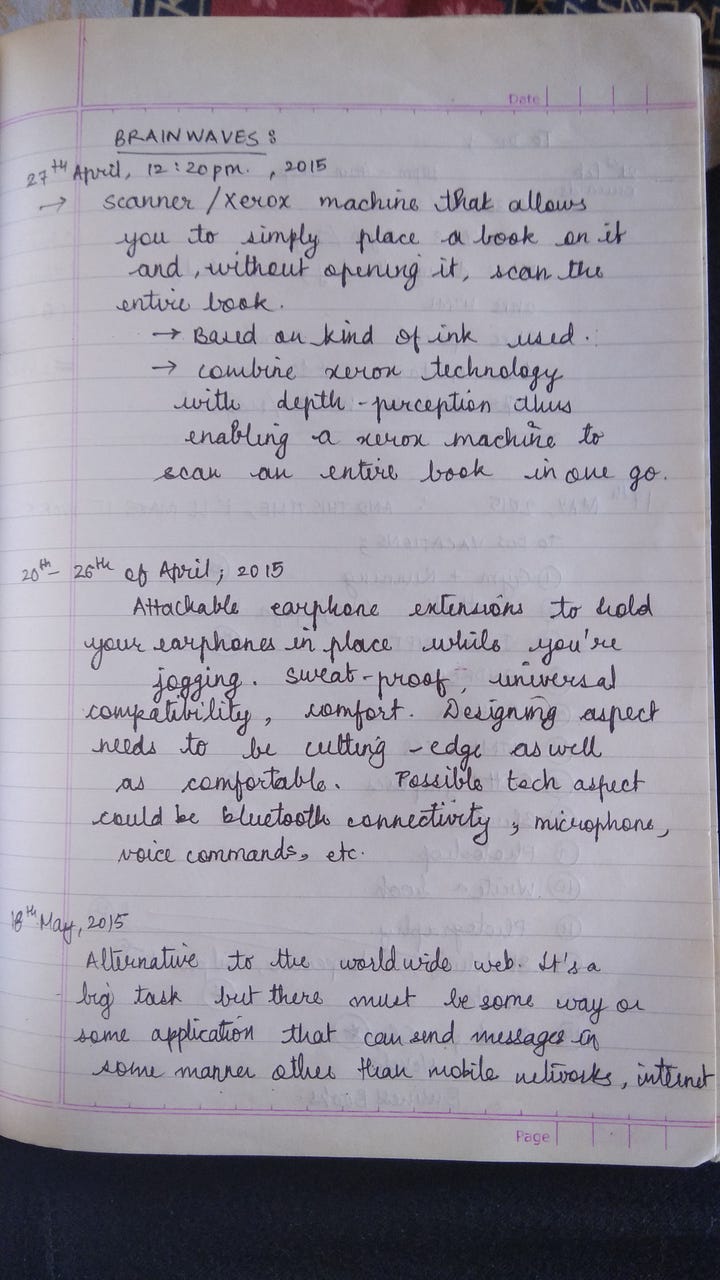 Date
BRAINWAVES :
27th April, 12:20pm. , 2015
→ Scanner/Xerox machine that allows
you to simply place a book on it
and, without opening it, scan the
entire book.
→ Based on kind of ink used.
→ combine xerox technology
with depth-perception thus
enabling a xerox machine to
scan an entire book in one go.
20th - 26th of April, 2015
Attachable earphone extensions to hold
your earphones in place while you're
jogging. Sweat-proof, universal
compatibility, comfort. Designing aspect
needs to be cutting-edge as well
as comfortable. Possible tech aspect
could be bluetooth connectivity, microphone,
voice commands, etc.
18th May, 2015
Alternative to the worldwide web. It's a
big task but there must be some way or
some application that can send messages in
some manner other than mobile networks, internet
Page